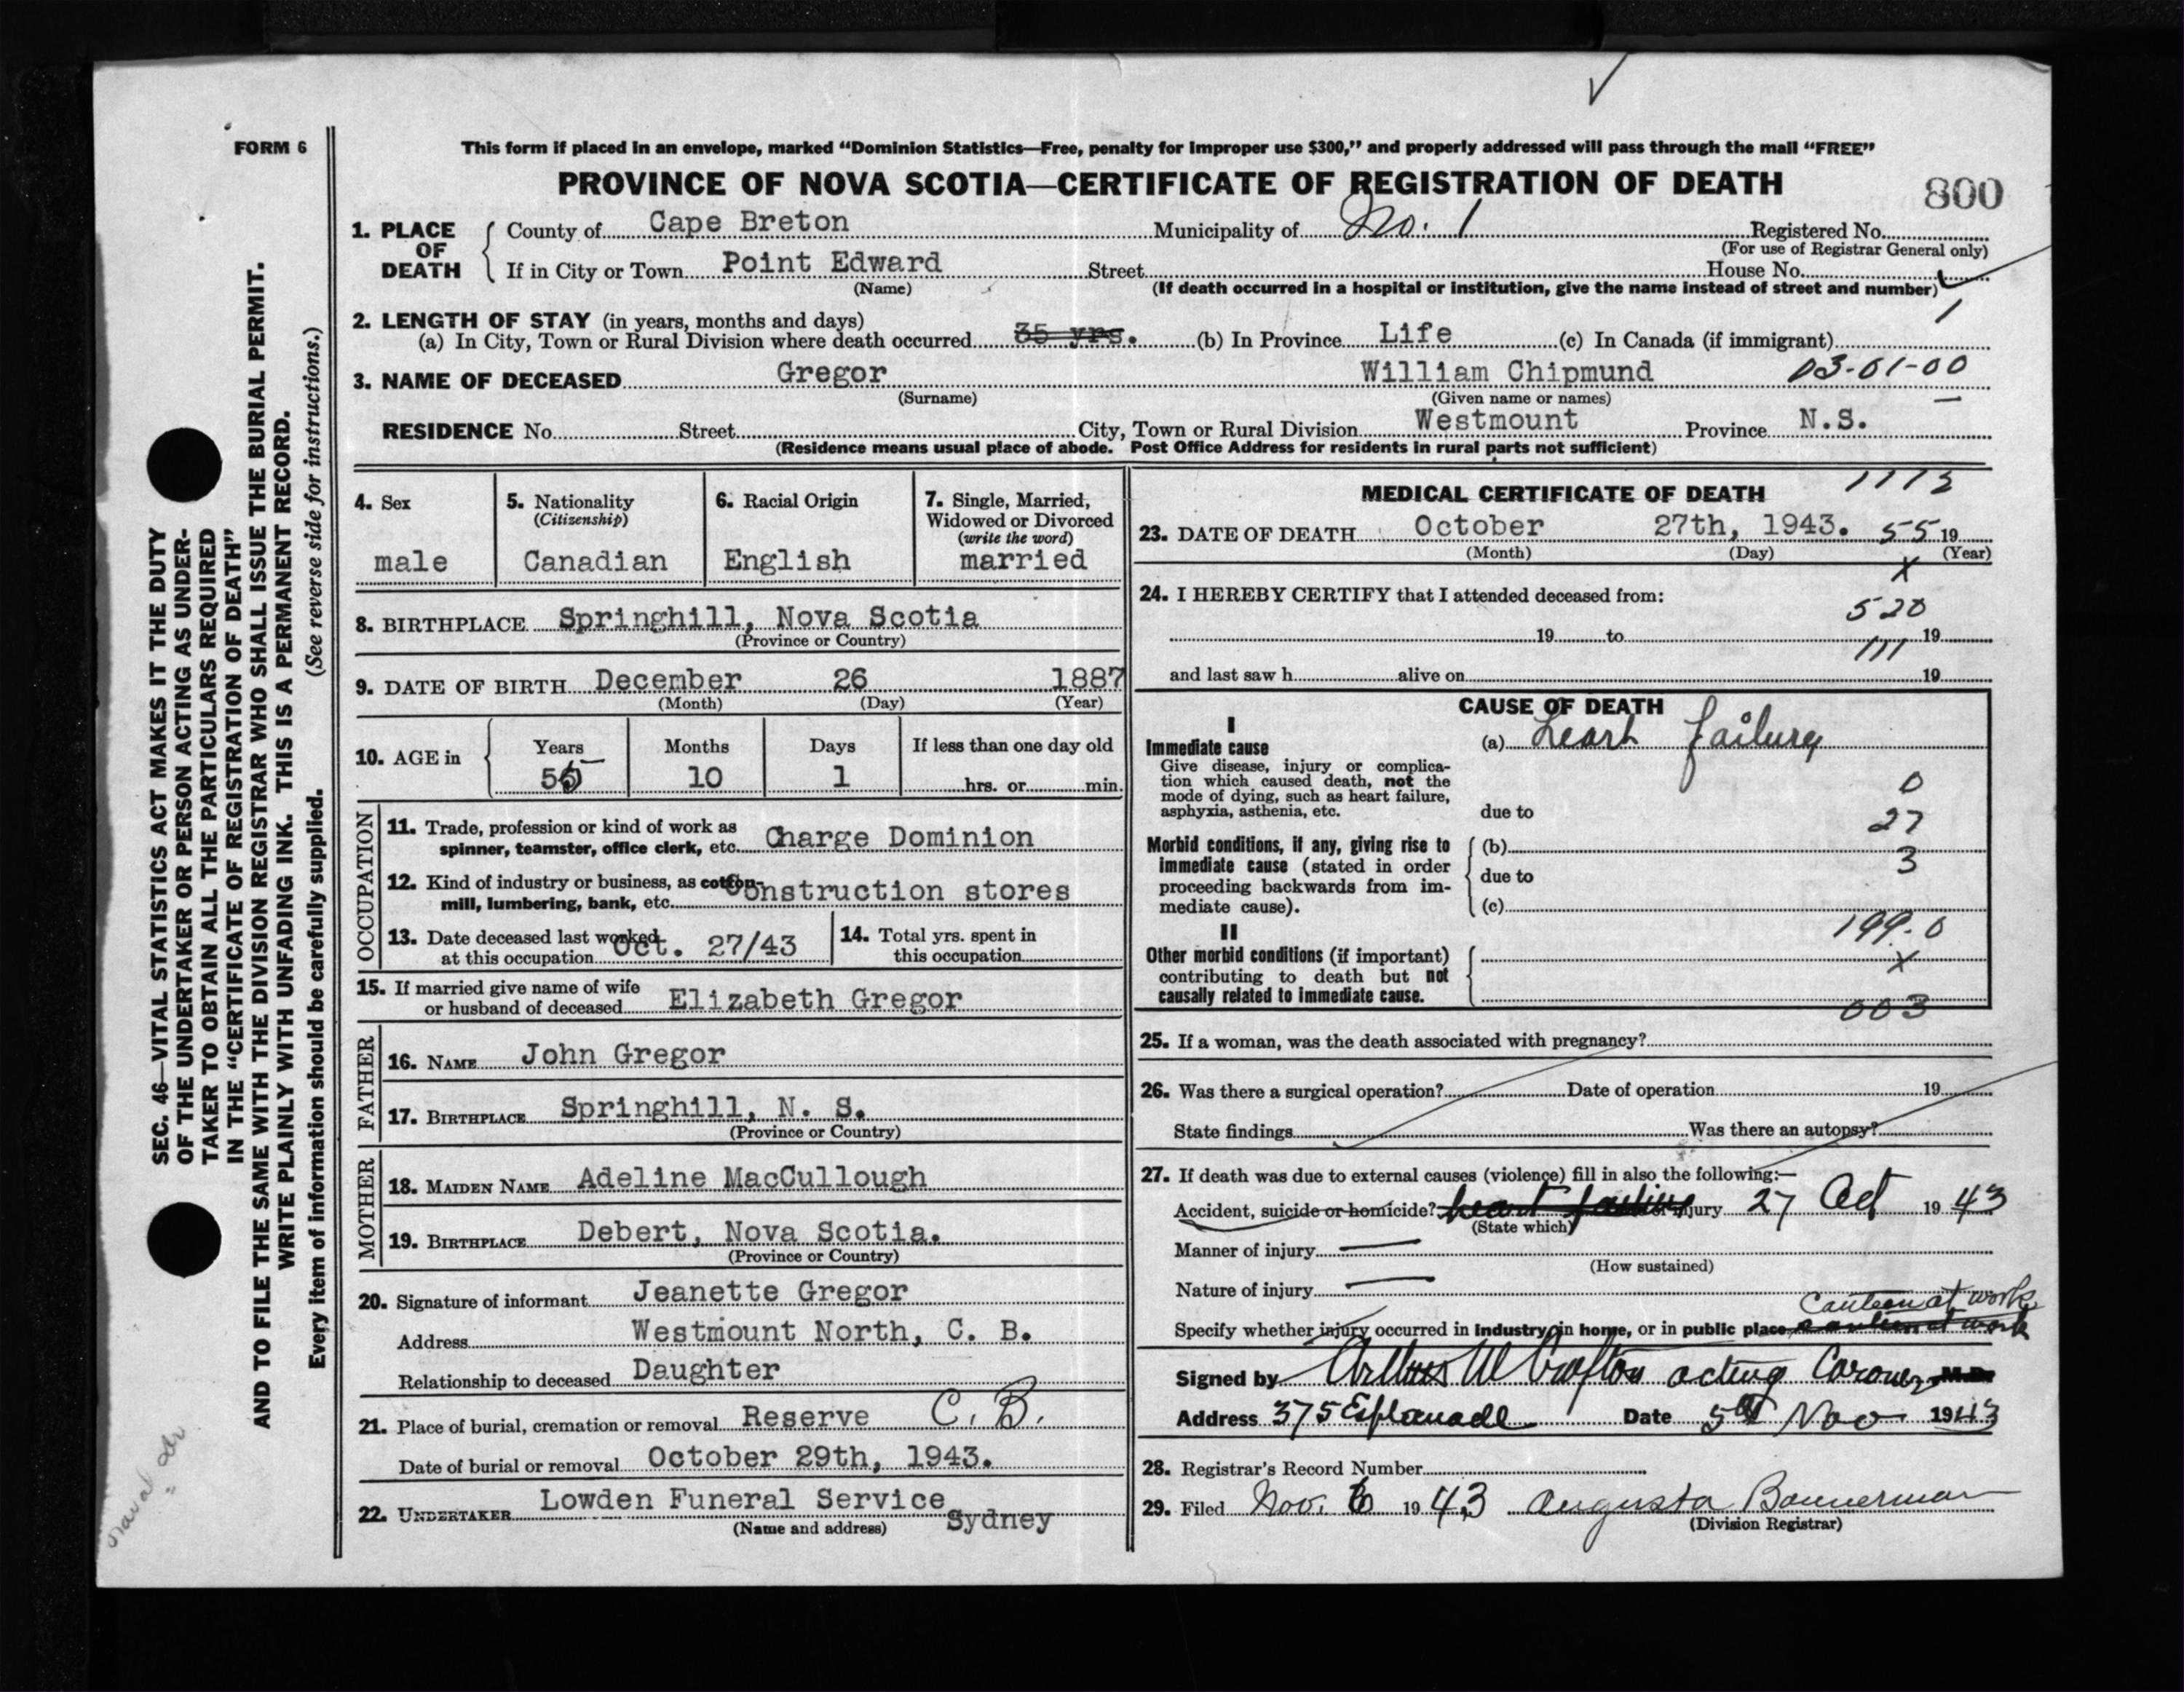 FORM 6
This form if placed in an envelope, marked “Dominion Statistics—Free, penalty for improper use $300,” and properly addressed will pass through the mail “FREE”
PROVINCE OF NOVA SCOTIA—CERTIFICATE OF REGISTRATION OF DEATH
800
1. PLACE OF DEATH
County of Cape Breton Municipality of No. 1 Registered No.
(For use of Registrar General only)
If in City or Town Point Edward Street House No.
(Name) (If death occurred in a hospital or institution, give the name instead of street and number)
1
2. LENGTH OF STAY (in years, months and days)
(a) In City, Town or Rural Division where death occurred 35 yrs. (b) In Province Life (c) In Canada (if immigrant)
3. NAME OF DECEASED Gregor William Chipmund 03-01-00
(Surname) (Given name or names)
RESIDENCE No. Street City, Town or Rural Division Westmount Province N.S.
(Residence means usual place of abode. Post Office Address for residents in rural parts not sufficient)
4. Sex
male
5. Nationality
(Citizenship)
Canadian
6. Racial Origin
English
7. Single, Married,
Widowed or Divorced
(write the word)
married
8. BIRTHPLACE Springhill, Nova Scotia
(Province or Country)
9. DATE OF BIRTH December 26 1887
(Month) (Day) (Year)
10. AGE in
Years Months Days If less than one day old
55 10 1 hrs. or min.
OCCUPATION
11. Trade, profession or kind of work as
spinner, teamster, office clerk, etc. Charge Dominion
12. Kind of industry or business, as cotton-
mill, lumbering, bank, etc. Construction stores
13. Date deceased last worked
at this occupation Oct. 27/43
14. Total yrs. spent in
this occupation
15. If married give name of wife
or husband of deceased Elizabeth Gregor
FATHER
16. NAME John Gregor
17. BIRTHPLACE Springhill, N. S.
(Province or Country)
MOTHER
18. MAIDEN NAME Adeline MacCullough
19. BIRTHPLACE Debert, Nova Scotia.
(Province or Country)
20. Signature of informant Jeanette Gregor
Address Westmount North, C. B.
Relationship to deceased Daughter
21. Place of burial, cremation or removal Reserve C. B.
Date of burial or removal October 29th, 1943.
22. UNDERTAKER Lowden Funeral Service
(Name and address) Sydney
MEDICAL CERTIFICATE OF DEATH 1113
23. DATE OF DEATH October 27th, 1943. 55 19
(Month) (Day) (Year)
X
24. I HEREBY CERTIFY that I attended deceased from:
520
19 to 19
111
and last saw h alive on 19
CAUSE OF DEATH
I
Immediate cause
Give disease, injury or complica-
tion which caused death, not the
mode of dying, such as heart failure,
asphyxia, asthenia, etc.
(a) Heart failure
0
due to
27
Morbid conditions, if any, giving rise to
immediate cause (stated in order
proceeding backwards from im-
mediate cause).
(b)
3
due to
(c)
199.0
II
Other morbid conditions (if important)
contributing to death but not
causally related to immediate cause.
X
003
25. If a woman, was the death associated with pregnancy?
26. Was there a surgical operation? Date of operation 19
State findings Was there an autopsy?
27. If death was due to external causes (violence) fill in also the following:—
Accident, suicide or homicide? heart failure injury 27 Oct 1943
(State which)
Manner of injury —
(How sustained)
Nature of injury —
Canteen at work
Specify whether injury occurred in industry, in home, or in public place canteen at work
Signed by Arthur W Crofton acting Coroner M.D.
Address 375 Esplanade Date 5th Nov 1943
28. Registrar's Record Number
29. Filed Nov. 6 1943 Augusta Bannerman
(Division Registrar)
SEC. 46—VITAL STATISTICS ACT MAKES IT THE DUTY
OF THE UNDERTAKER OR PERSON ACTING AS UNDER-
TAKER TO OBTAIN ALL THE PARTICULARS REQUIRED
IN THE “CERTIFICATE OF REGISTRATION OF DEATH”
AND TO FILE THE SAME WITH THE DIVISION REGISTRAR WHO SHALL ISSUE THE BURIAL PERMIT.
WRITE PLAINLY WITH UNFADING INK. THIS IS A PERMANENT RECORD.
Every item of information should be carefully supplied. (See reverse side for instructions.)